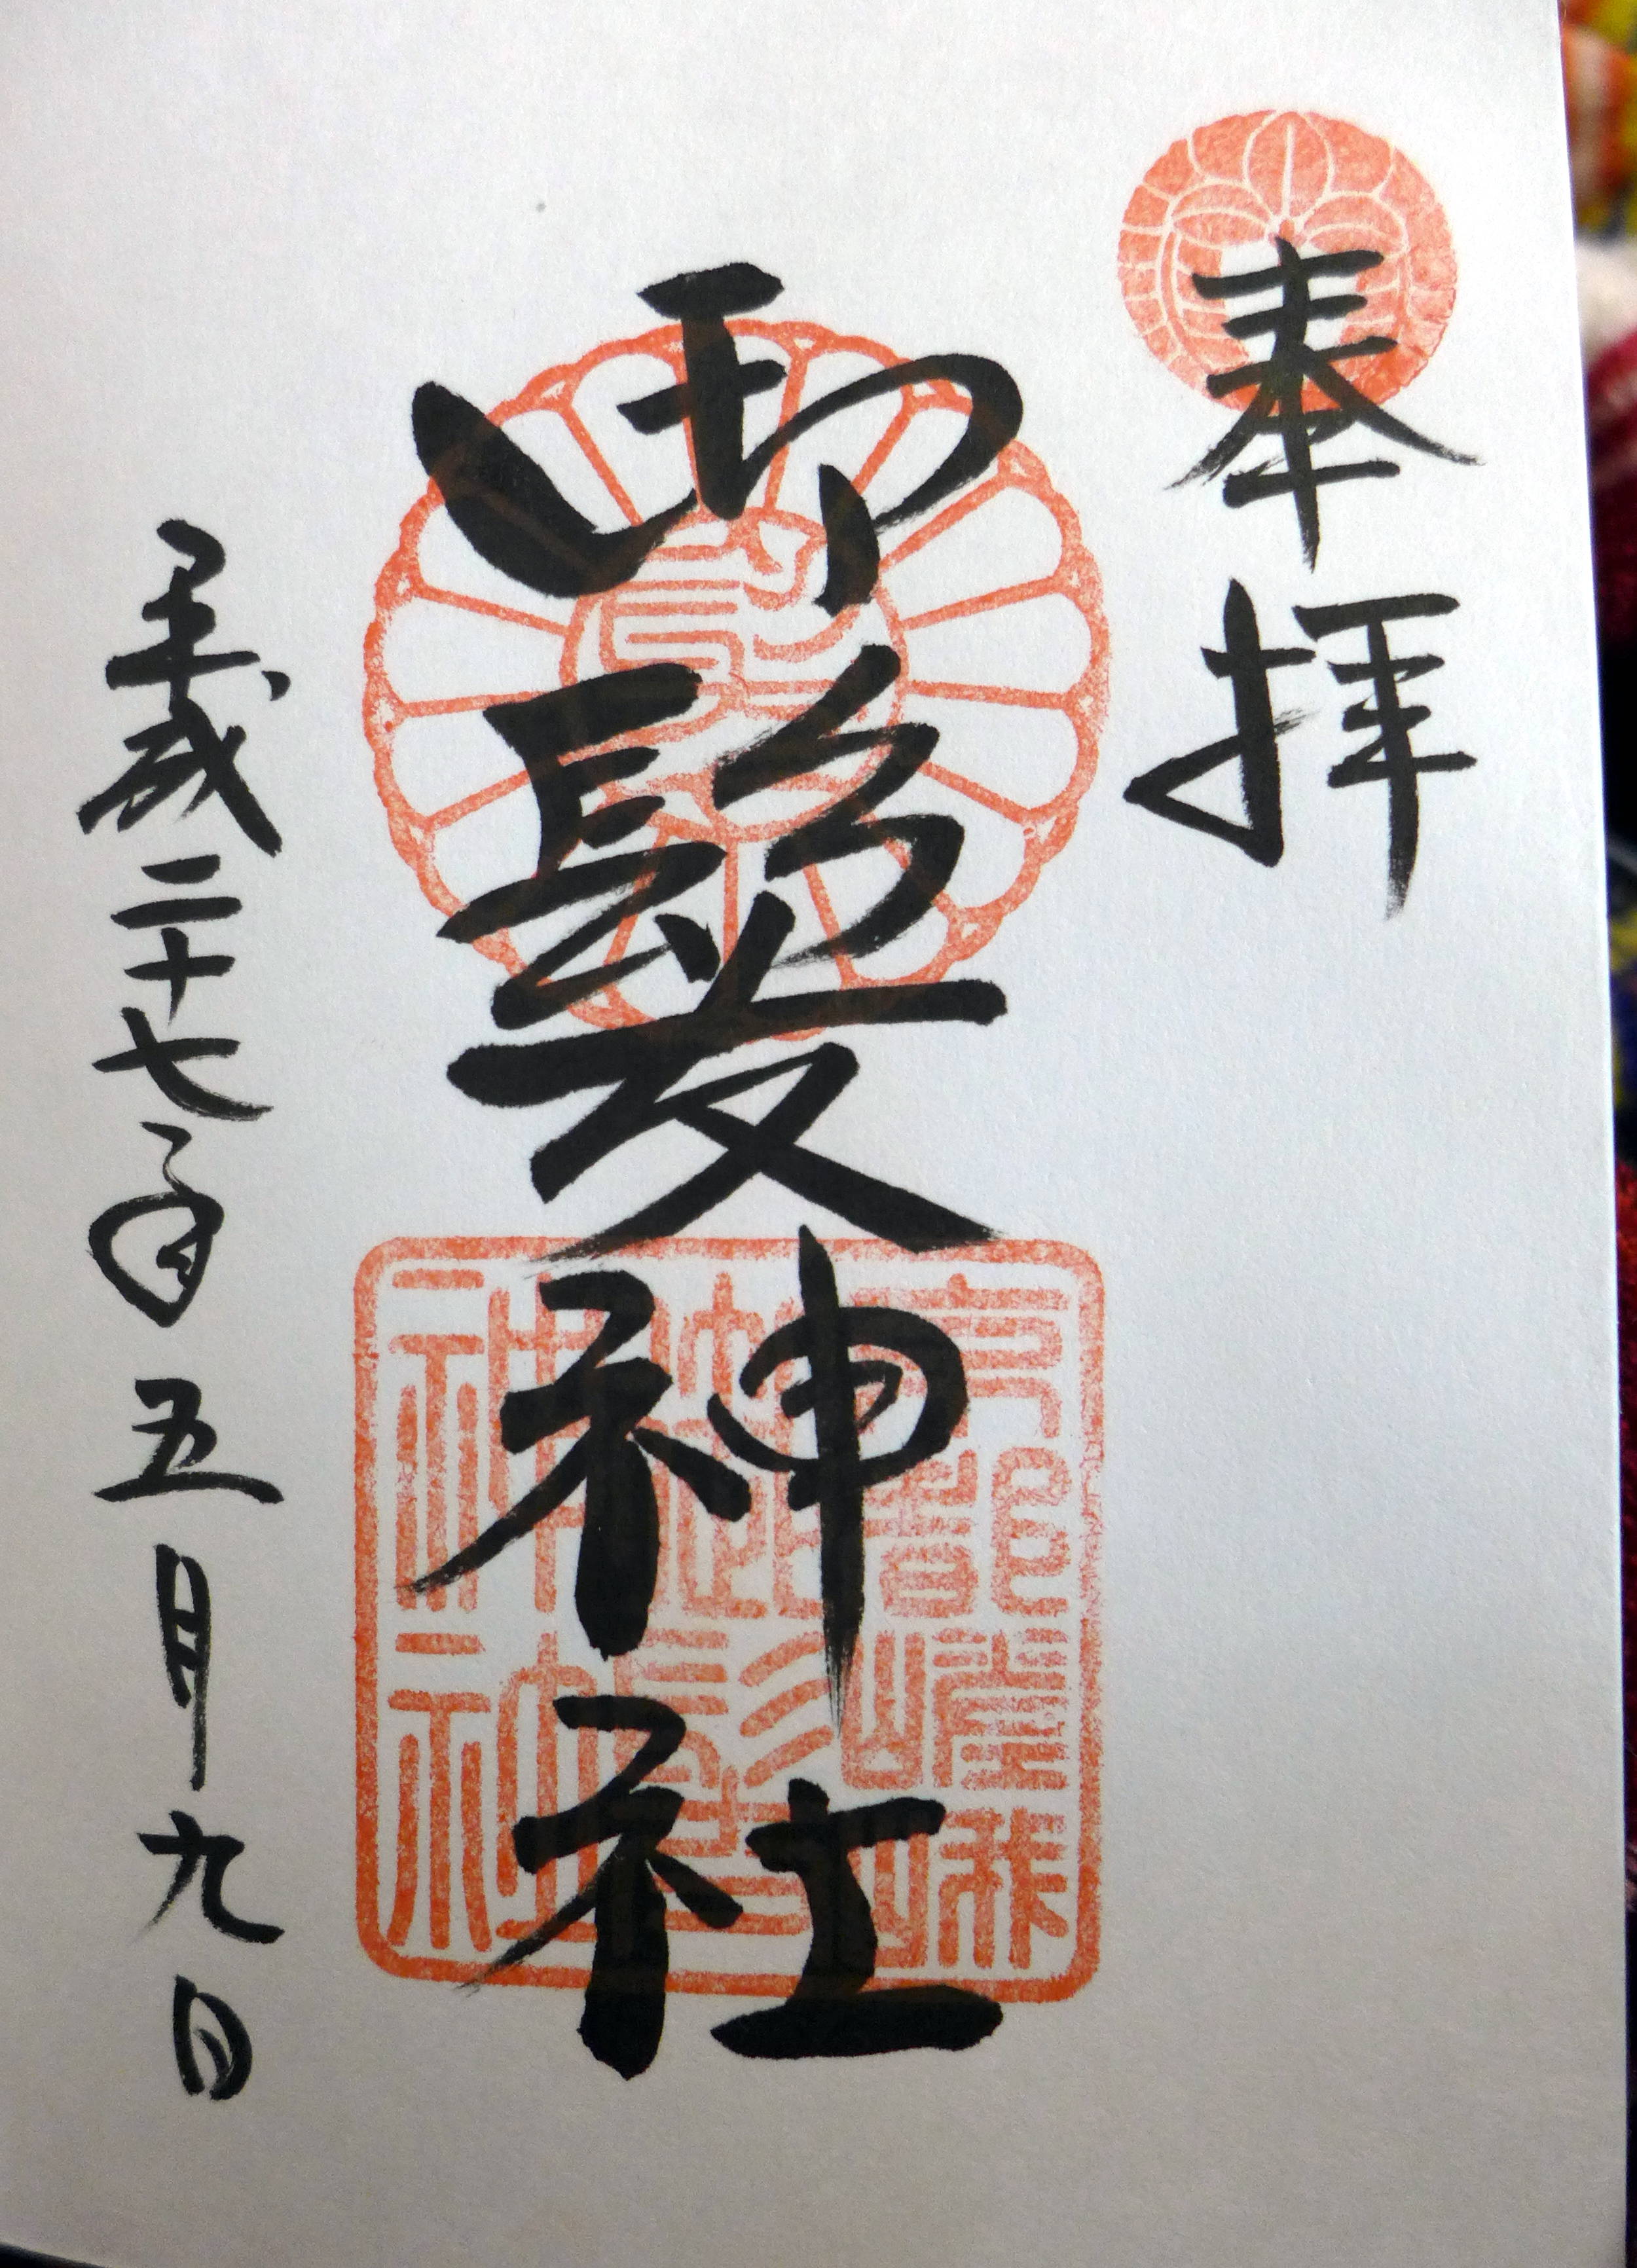 奉拝
御髪神社
平成二十七年五月九日
京都嵯峨
御髪
神社